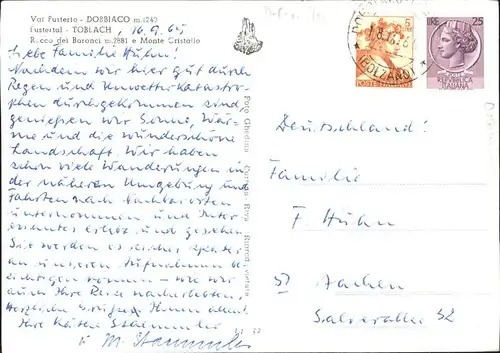 Val Pusteria - DOBBIACO m. 1242
Pustertal - TOBLACH, 16.9.65
Rocca dei Baranci m. 2881 e Monte Cristallo
Liebe Familie Huhn!
Nachdem wir hier gut durch
Regen und Unwetterkatastro-
phen durchgekommen sind,
genießen wir Sonne, Wär-
me und die wunderschöne
Landschaft. Wir haben
schon viele Wanderungen in
der näheren Umgebung und
Fahrten nach Nachbarorten
unternommen und Inter-
essantes erlebt und gesehen.
Sie werden es sicher später
an unseren Aufnahmen be-
sichtigen können - wie wir
auch Ihre Reise nacherlebten.
Herzliche Grüße Ihnen allen!
Ihre Käthe Stammler
u. M. Stammler
Foto Ghedina
5
LIRE
POSTE ITALIANE
(BOLZANO)
25
REPVBBLICA
ITALIANA
Deutschland!
Familie
F. Huhn
51 Aachen
Salierallee 52